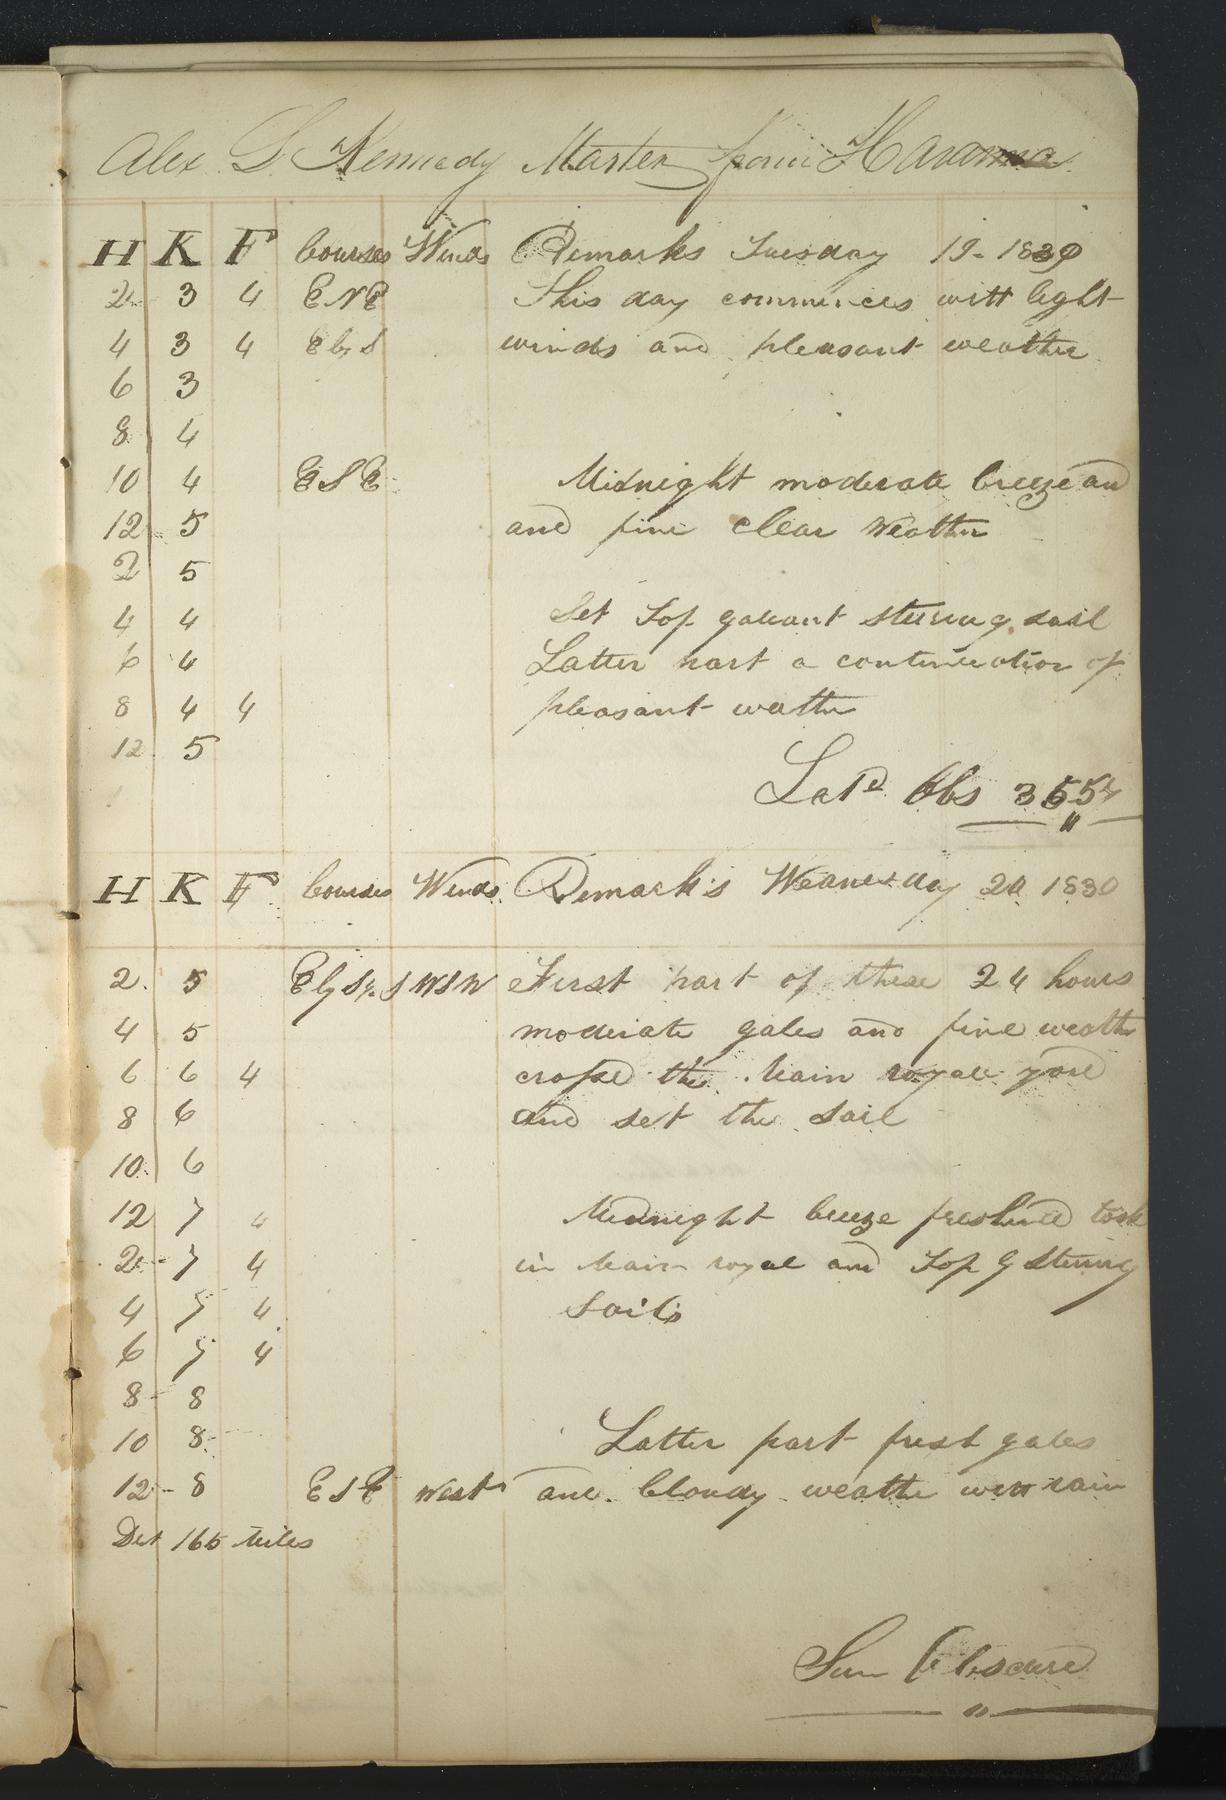 Alex L Kennedy Master from Havanna
H K F Courses Winds Remarks Tuesday 19 - 1830
2 3 4 ENE This day commences with light
4 3 4 E by S winds and pleasant weather
6 3
8 4
10 4 ESE Midnight moderate breeze and
12 5 and fine clear weather
2 5
4 4 Set Top galiant steering sail
6 4 Latter part a continuation of
8 4 4 pleasant weather
12 5
Latd Obs 35 54
H K F Courses Winds Remark's Weanesday 20 1830
2 5 E by S ½ S WSW First part of these 24 hours
4 5 moderate gales and fine weather
6 6 4 crossed the Main royal yard
8 6 and set the sail
10 6
12 7 4 Midnight breeze freshened took
2 - 7 4 in Main royal and Top G steering
4 7 4 sails
6 7 4
8 - 8
10 8 Latter part fresh gales
12 - 8 ESE West and Cloudy weather with rain
Dist 165 Miles
Sun Obscured